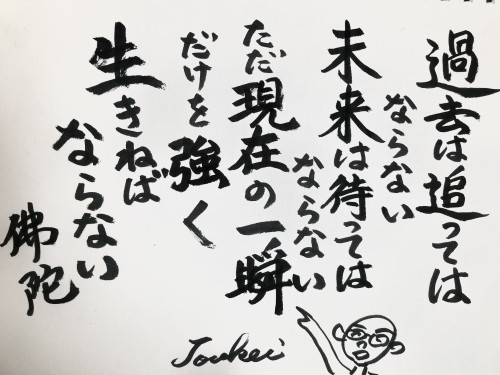 過去は追っては
ならない
未来は待っては
ならない
ただ現在の一瞬
だけを強く
生きねば
ならない
佛陀
Joukei